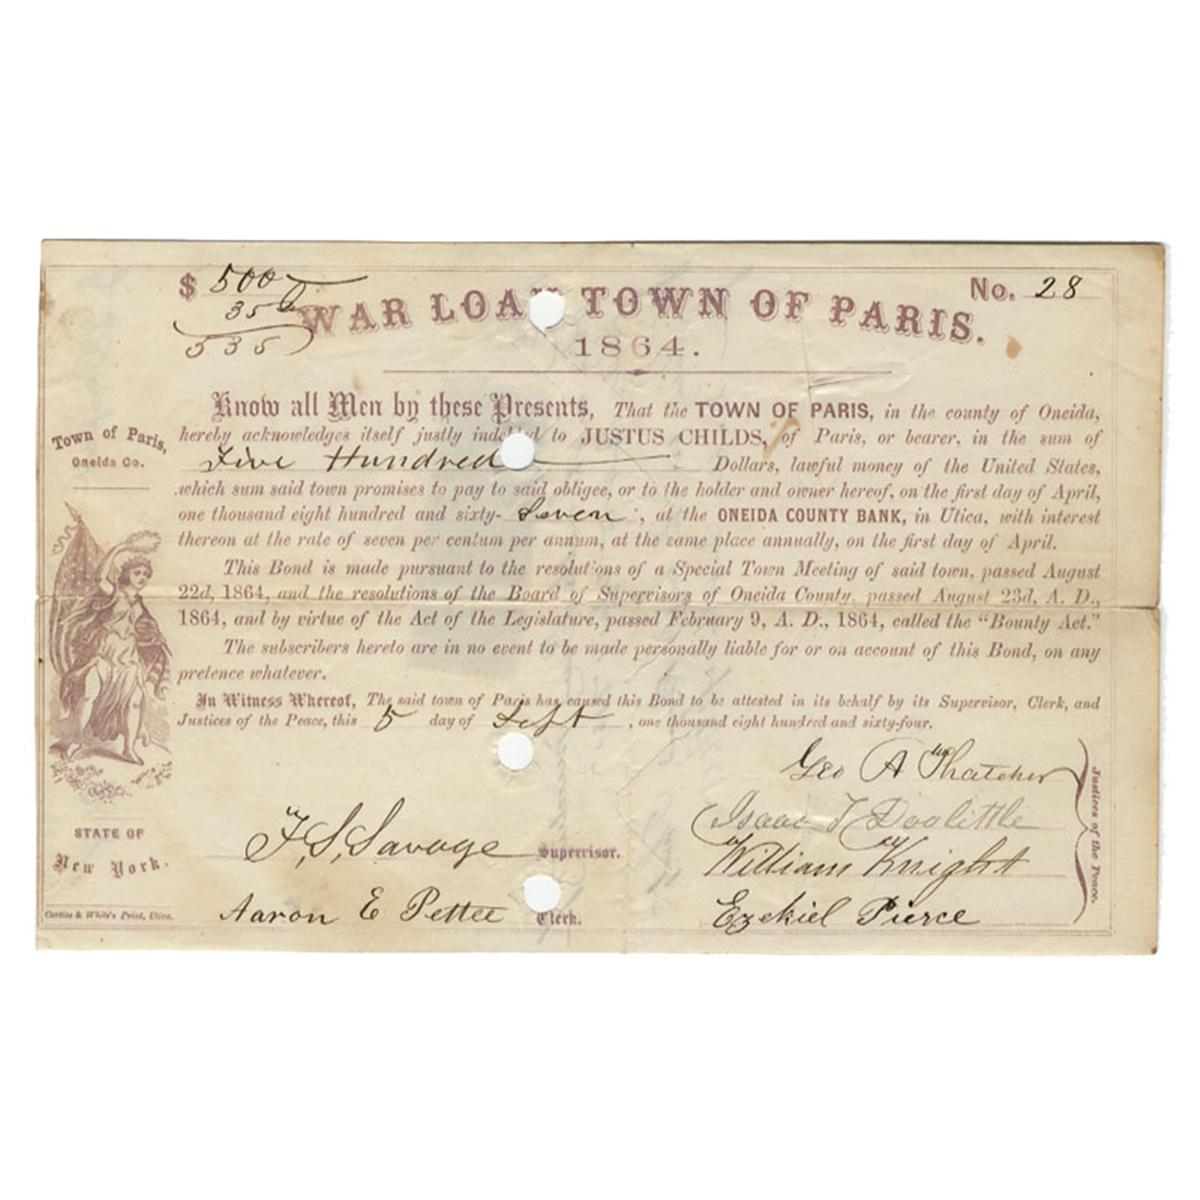 $ 500
35
535
No. 28
WAR LOAN TOWN OF PARIS.
1864.
Know all Men by these Presents, That the TOWN OF PARIS, in the county of Oneida,
hereby acknowledges itself justly indebted to JUSTUS CHILDS, of Paris, or bearer, in the sum of
Five Hundred Dollars, lawful money of the United States,
which sum said town promises to pay to said obligee, or to the holder and owner hereof, on the first day of April,
one thousand eight hundred and sixty- Seven, at the ONEIDA COUNTY BANK, in Utica, with interest
thereon at the rate of seven per centum per annum, at the same place annually, on the first day of April.
This Bond is made pursuant to the resolutions of a Special Town Meeting of said town, passed August
22d, 1864, and the resolutions of the Board of Supervisors of Oneida County, passed August 23d, A. D.,
1864, and by virtue of the Act of the Legislature, passed February 9, A. D., 1864, called the "Bounty Act."
The subscribers hereto are in no event to be made personally liable for or on account of this Bond, on any
pretence whatever.
In Witness Whereof, The said town of Paris has caused this Bond to be attested in its behalf by its Supervisor, Clerk, and
Justices of the Peace, this 5 day of Sept, one thousand eight hundred and sixty-four.
Town of Paris,
Oneida Co.
STATE OF
New York.
Curtiss & White's Print, Utica.
F. S. Savage Supervisor.
Aaron E Pettee Clerk.
Geo A Thatcher
Isaac T Doolittle
William Knight
Ezekiel Pierce
Justices of the Peace.